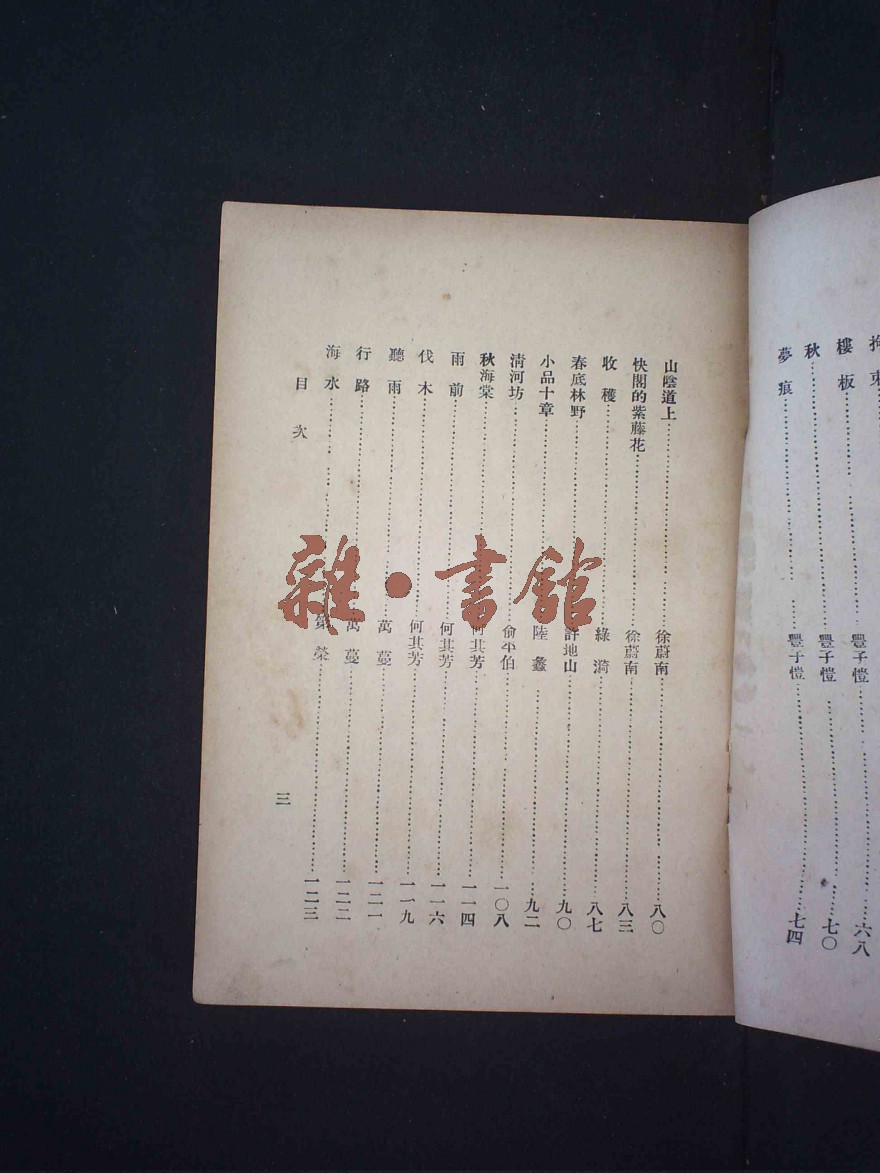 拘束
樓板……豐子愷……六八
秋……豐子愷……七〇
夢痕……豐子愷……七四
山陰道上……徐蔚南……八〇
快閣的紫藤花……徐蔚南……八三
收穫……綠漪……八七
春底林野……許地山……九〇
小品十章……陸蠡……九二
清河坊……俞平伯……一〇八
秋海棠……何其芳……一一四
雨前……何其芳……一一六
伐木……何其芳……一一九
聽雨……萬蔓……一二一
行路……萬蔓……一二二
海水……第榮……一二三
目次
三
雜·書館